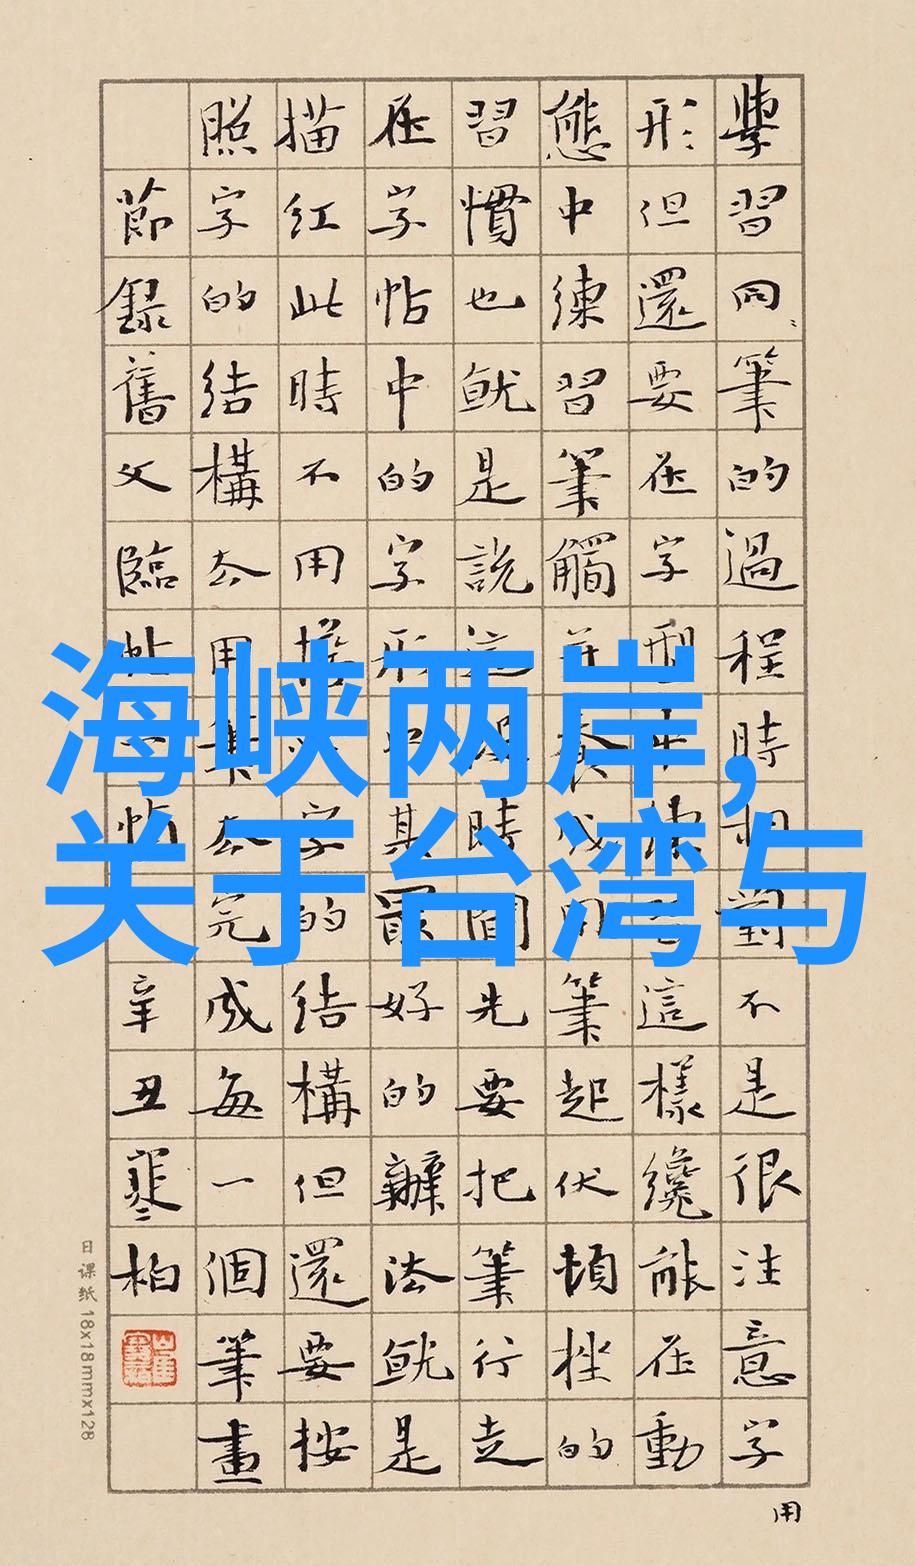 海峡两岸,
关于台湾与
學習同筆的過程時相對不是很注意字
形但還要在字型練這樣纔能在動
態中練習筆觸并養成用筆起伏頓挫的
習慣也就是說這段時間先要把筆行走
在字帖中的字形其最好的辦法就是
描紅此時不用擔心字的結構但還要按
照字的結構去用筆去完成每一個筆畫
節錄舊文臨帖帖辛丑寒柏
用
日课纸 18x18mmx128